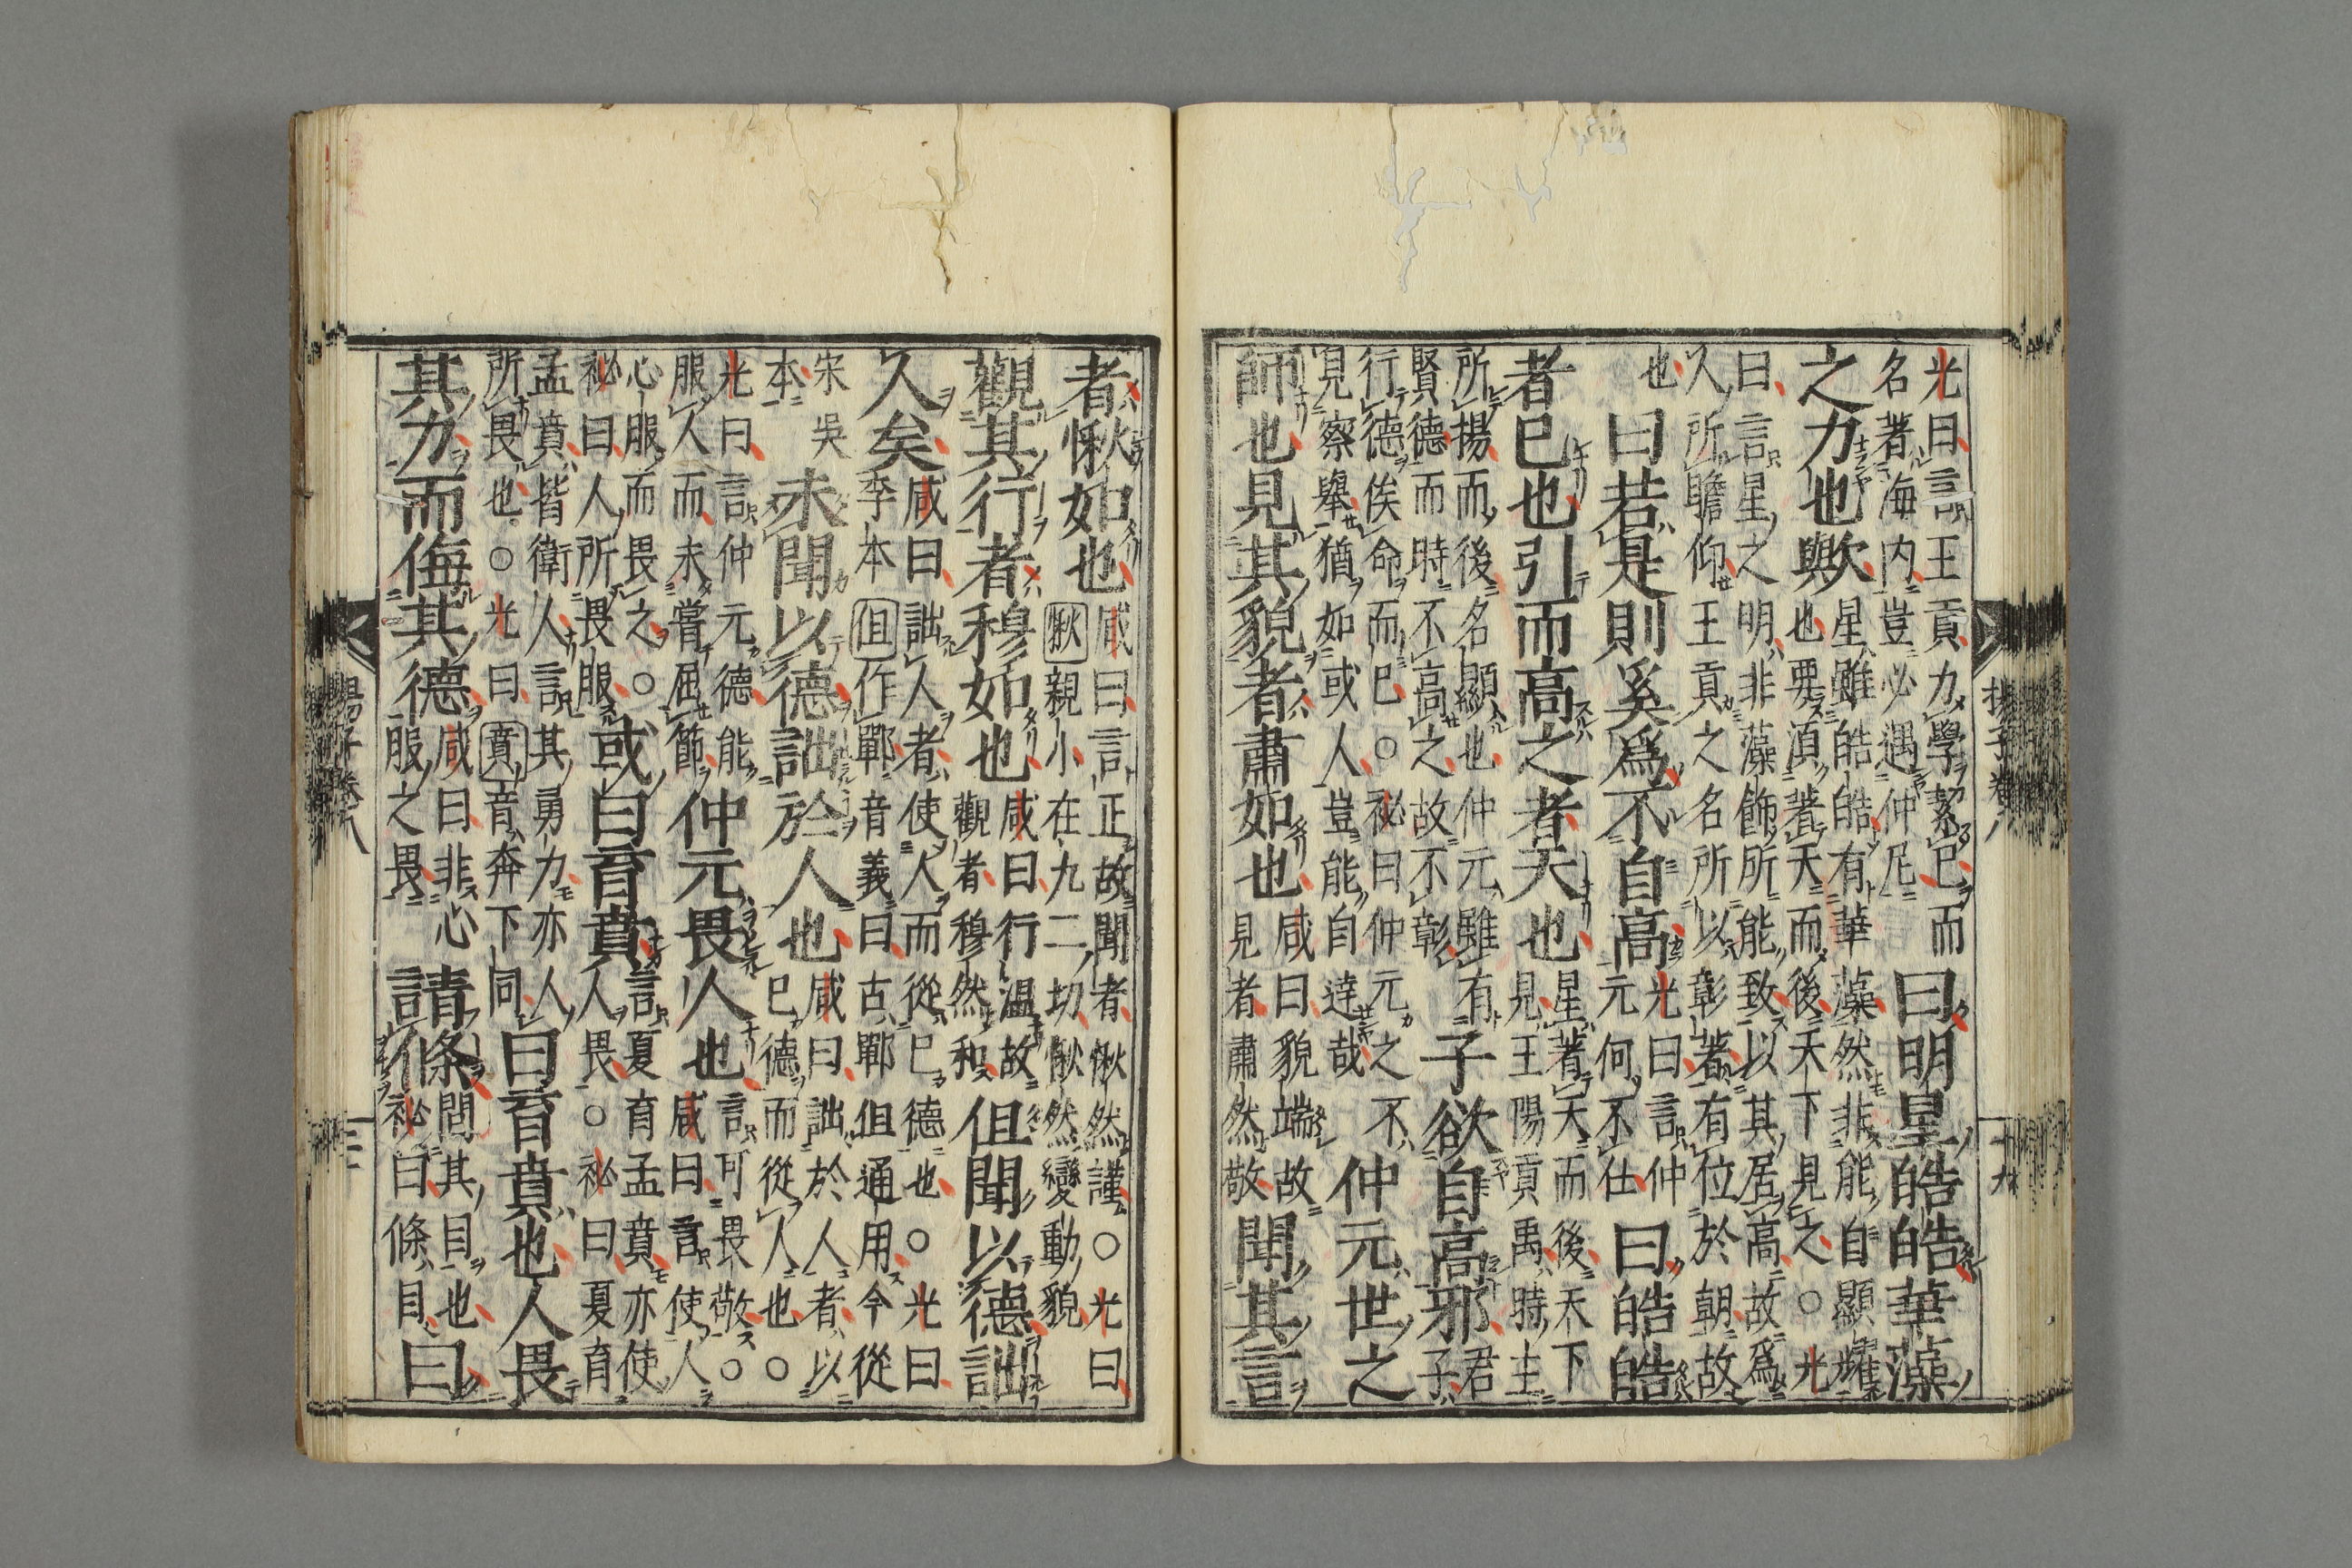 揚子卷八
十九
光曰言王貢力學絜已而
名著海内豈必遇仲尼
曰明星皓皓華藻
之力也歟
星雖皓皓有華藻然非能自顯耀
也要須著天而後天下見之○光
曰言星之明非藻飾所能致以其居高故爲
人所瞻仰王貢之名所以彰著有位於朝故
也
曰若是則奚爲不自高
光曰言仲
元何不仕
曰皓皓
者已也引而高之者天也
星著天而後天下
見王陽貢禹時主
所揚而後名顯也仲元雖有
賢德而時不高之故不彰
子欲自高邪
君
子
行德俟命而已○祕曰仲元之不
見察舉猶如或人豈能自達哉
仲元世之
師也見其貌者肅如也
咸曰貌端故
見者肅然敬
聞其言
者愀如也
咸曰言正故聞者愀然謹○光曰
愀親小在九二切愀然變動貌
觀其行者穆如也
咸曰行温故
觀者穆然和
但聞以德詘
人矣
咸曰詘人者使人而從已德也○光曰
李本但作鄲音義曰古鄲但通用今從
宋吳
本
未聞以德詘於人也
咸曰詘於人者以
已德而從人也○
光曰言仲元德能
服人而未嘗屈節
仲元畏人也
言可畏敬○
咸曰言使人
心服而畏之○
祕曰人所畏服
或曰育賁
言夏育孟賁亦使
人畏○祕曰夏育
孟賁皆衛人言其勇力亦人
所畏也○光曰賁音奔下同
曰育賁也人畏
其力而侮其德
咸曰非心
服之畏
請條
問其目也
祕曰條目
曰
揚子卷八